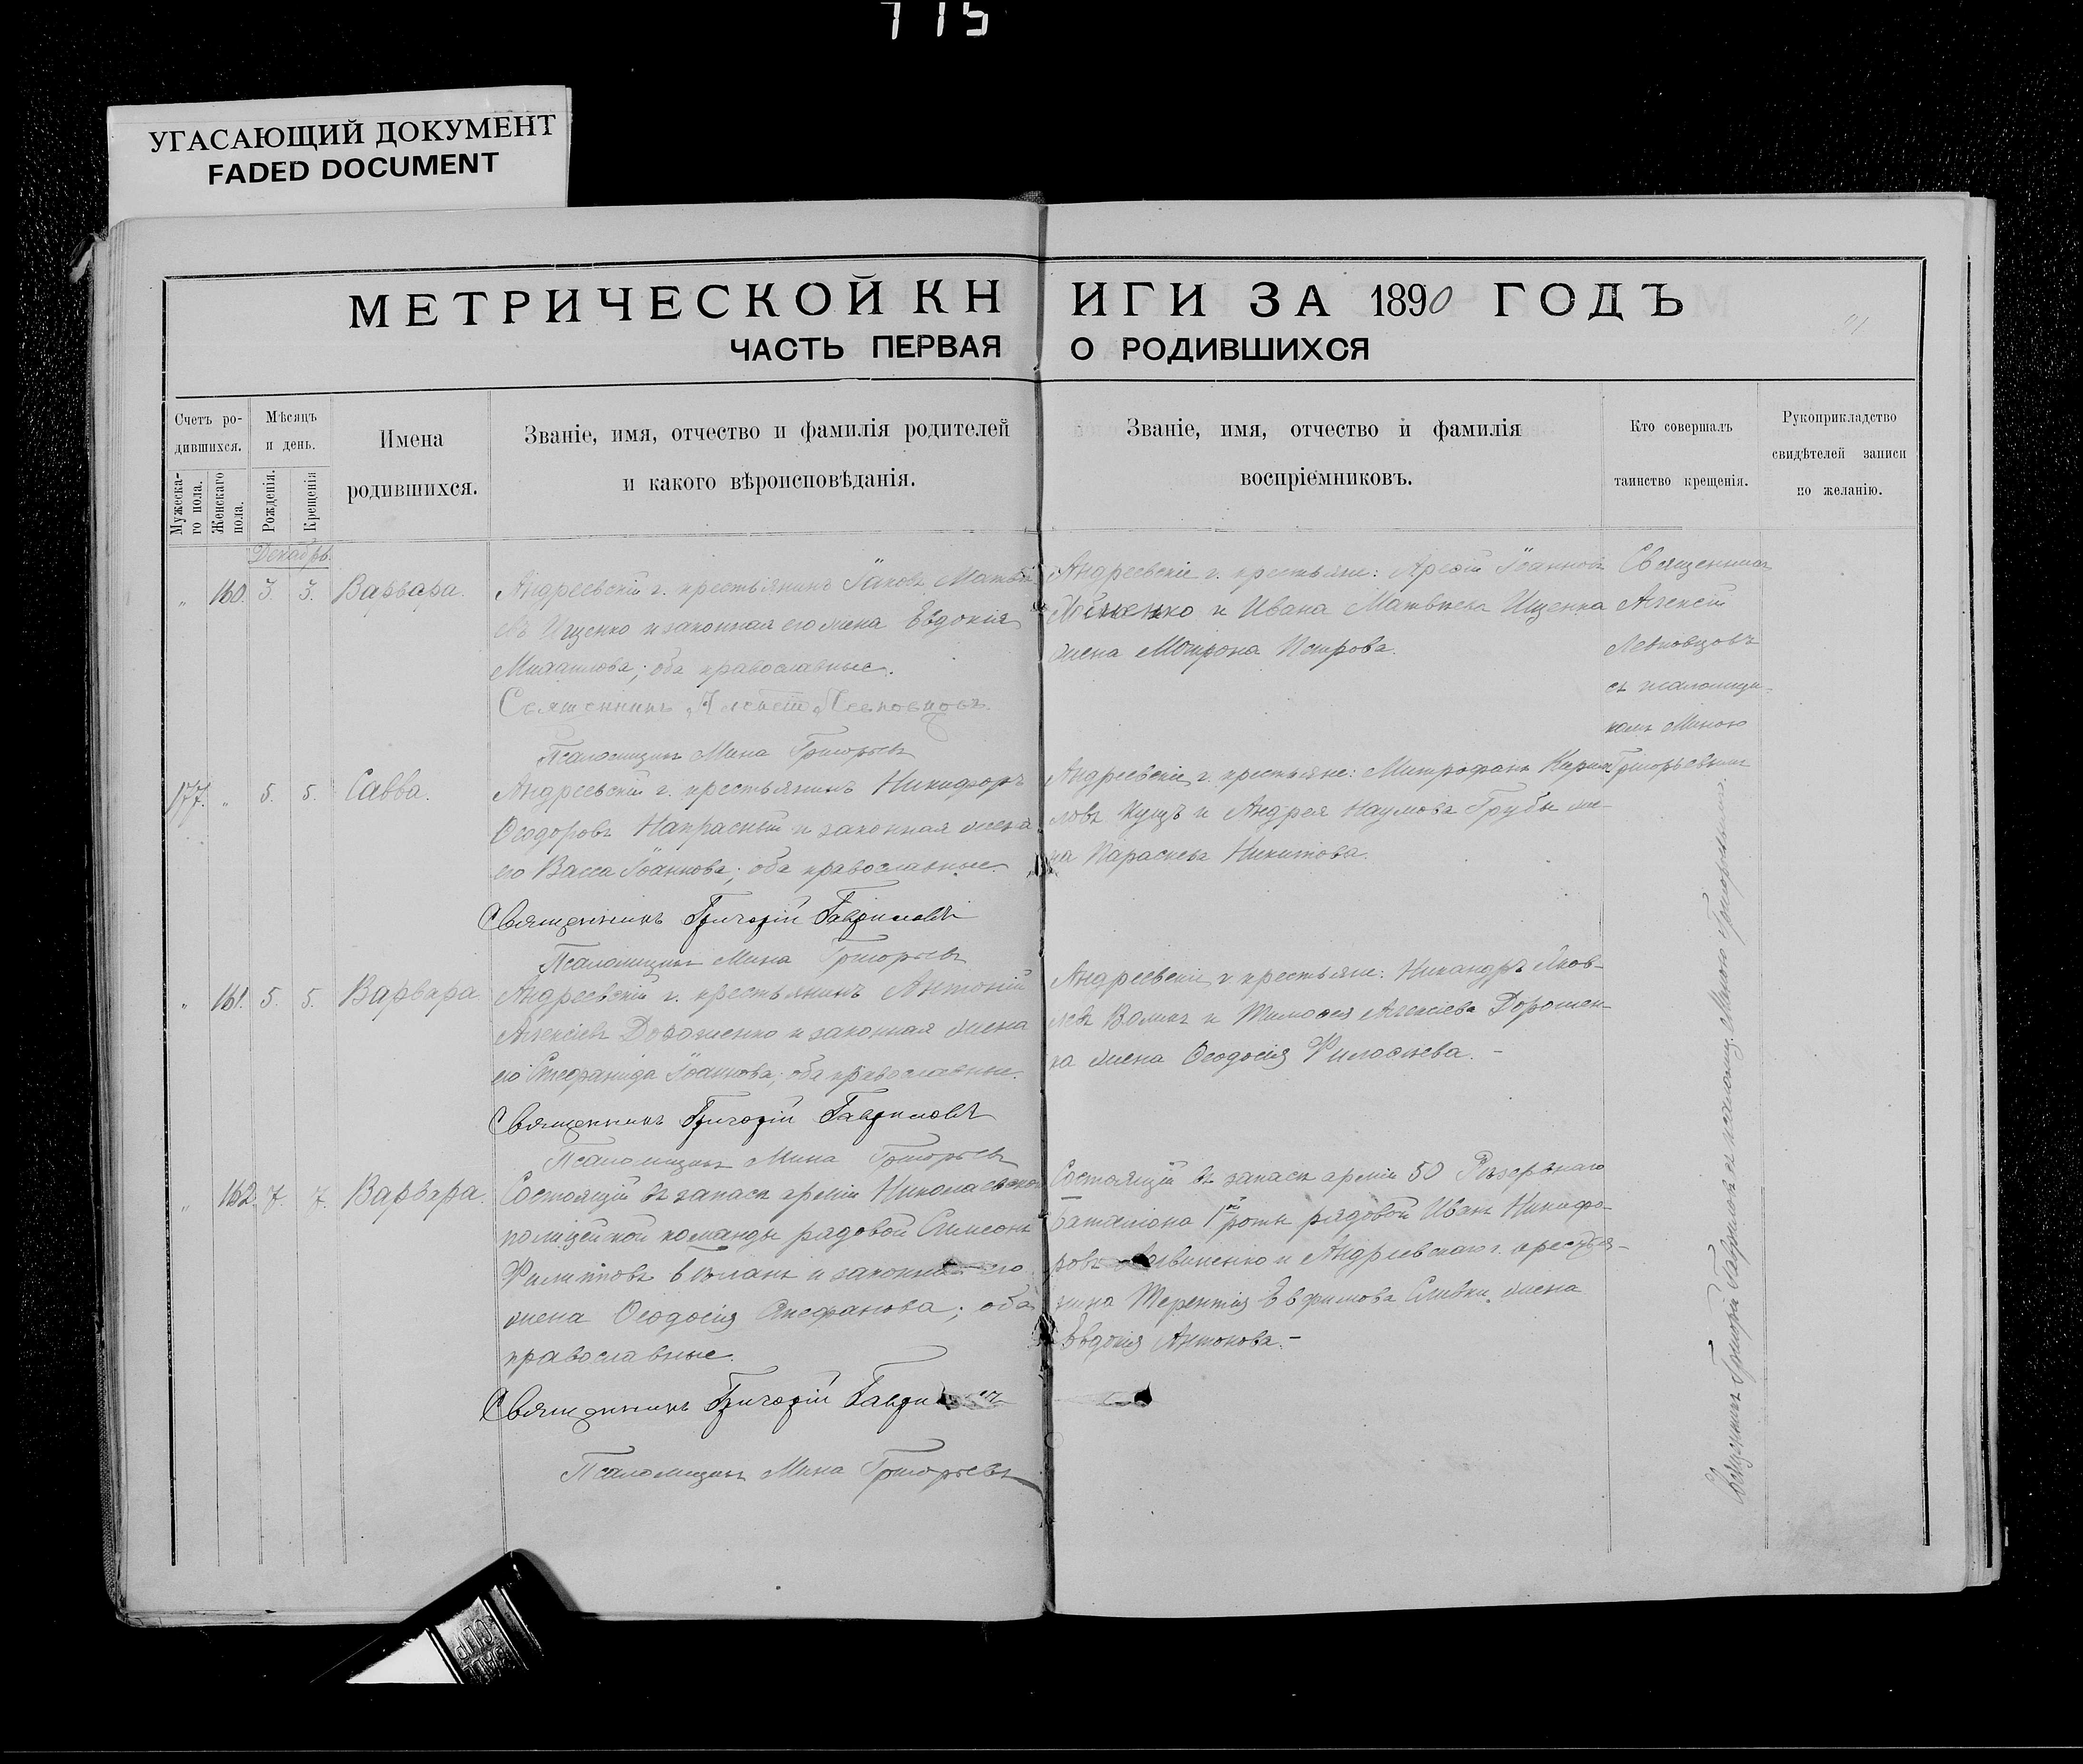 115
УГАСАЮЩИЙ ДОКУМЕНТ
FADED DOCUMENT
МЕТРИЧЕСКОЙ КНИГИ ЗА 1890 ГОДЪ
ЧАСТЬ ПЕРВАЯ О РОДИВШИХСЯ
Счетъ ро-
дившихся.
Мужеска-
го пола.
Женскаго
пола.
Мѣсяцъ
и день.
Рожденія.
Крещенія
Имена
родившихся.
Званіе, имя, отчество и фамилія родителей
и какого вѣроисповѣданія.
Званіе, имя, отчество и фамилія
воспріемниковъ.
Кто совершалъ
таинство крещенія.
Рукоприкладство
свидѣтелей записи
по желанію.
Декабрь.
„ 160. 3. 3. Варвара.
Андреевскій г. крестьянинъ Іаковъ Матвѣ-
евъ Ищенко и законная его жена Евдокія
Михаилова; оба православные.
Священникъ Алексій Левковцовъ.
Псаломщикъ Мина Григорьевъ
Андреевскіе г. крестьяне: Іоанновъ
и Ивана Матвѣева Ищенка
жена Матрона Петрова.
Священникъ
Алексій
Левковцовъ
съ псаломщи-
комъ Миною
Григорьевымъ
177. „ 5. 5. Савва.
Андреевскій г. крестьянинъ Никифоръ
Ѳеодоровъ Напрасный и законная жена
его Васса Іоаннова; оба православные
Священникъ Григорій Гавриловъ
Псаломщикъ Мина Григорьевъ
Андреевскіе г. крестьяне: Митрофанъ Кирил-
ловъ Кущъ и Андрея Наумова Грубы же-
на Параскева Никитова.
„ 161. 5. 5. Варвара
Андреевскій г. крестьянинъ Антоній
Алексіевъ Дорошенко и законная жена
его Стефанида Іоаннова; оба православные.
Священникъ Григорій Гавриловъ
Псаломщикъ Мина Григорьевъ
Андреевскіе г. крестьяне: Никандръ Яков-
левъ и Тимоѳея Алексіева Дорошен-
ка жена Ѳеодосія Филоѳиева. -
„ 162. 7. 7. Варвара.
Состоящій въ запасѣ арміи Николаевской
полицейской команды рядовой Симеонъ
Филипповъ и законная его
жена Ѳеодосія Стефанова; оба
православные.
Священникъ Григорій Гавриловъ
Псаломщикъ Мина Григорьевъ
Состоящій въ запасѣ арміи 50 Резервнаго
баталіона 1й роты рядовой Иванъ Никифо-
ровъ и Андреевскаго г. крестья-
нина Терентія Евфимова жена
Евдокія Антонова. -
Священникъ Григорій Гавриловъ съ псаломщ. Миною Григорьевымъ.